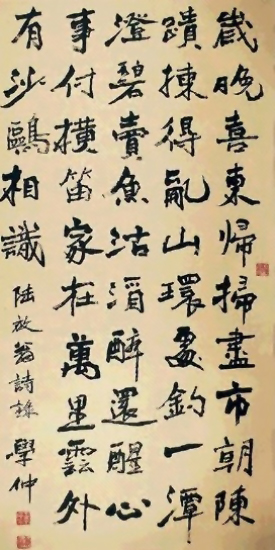 歲晚喜東歸掃盡市朝陳
蹟揀得亂山環處釣一潭
澄碧賣魚沽酒醉還醒心
事付橫笛家在萬里雲外
有沙鷗相識
陸放翁詩錄 學仲